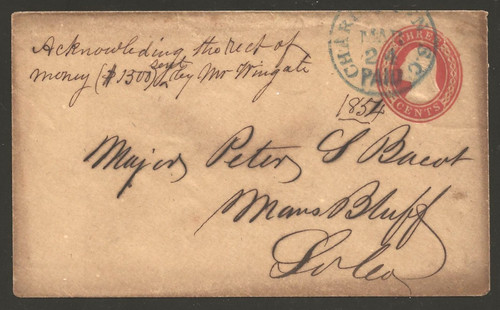 Acknowledging the rect of
money ($1300) sent by Mr Wingate
CHARLESTON S.C.
MAR
24
PAID
THREE
CENTS
1854
Major Peter S Bacot
Mars Bluff
So Ca